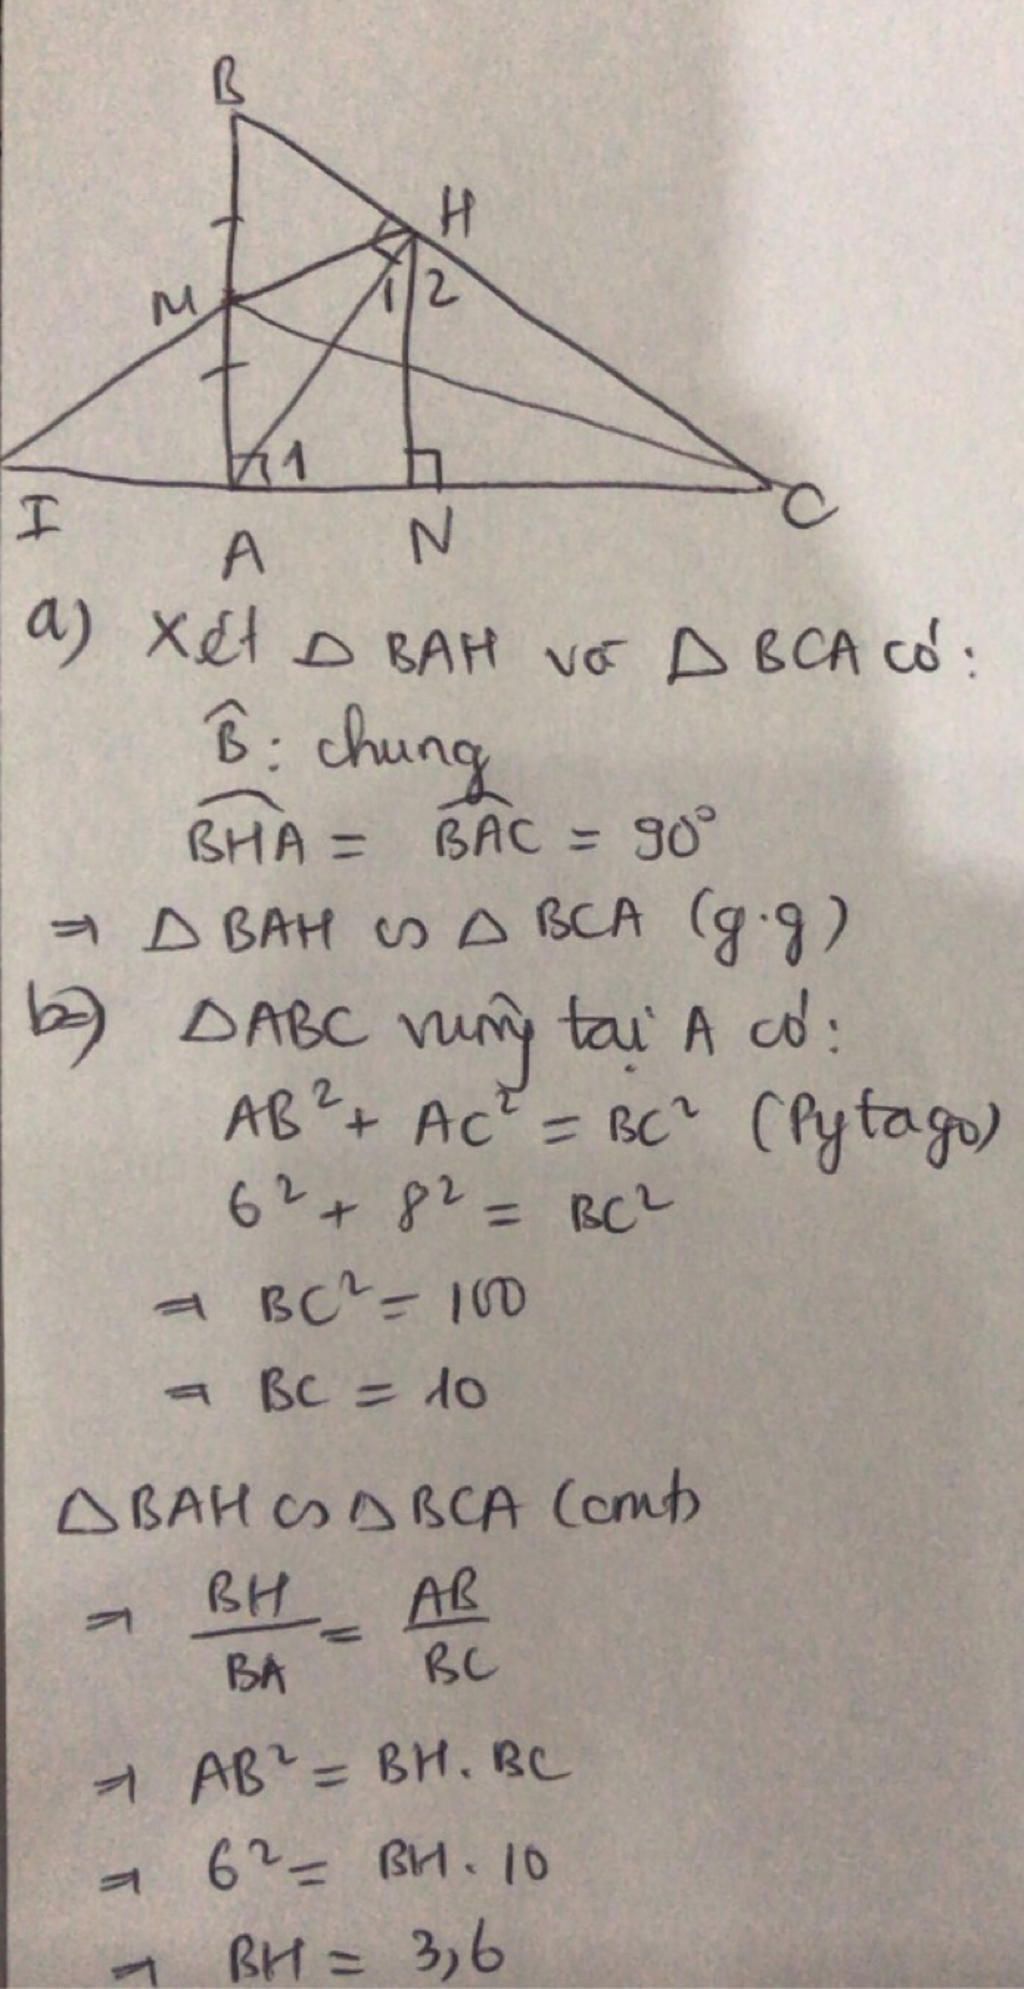 B
H
M
1 2
1
I
A
N
C
a) Xét △ BAH và △ BCA có:
B̂: chung
B͡HA = B͡AC = 90°
⇒ △ BAH ∽ △ BCA (g.g)
b) △ABC vuông tại A có:
AB² + AC² = BC² (Pytago)
6² + 8² = BC²
⇒ BC² = 100
⇒ BC = 10
△BAH ∽ △BCA (cmt)
⇒ BH/BA = AB/BC
⇒ AB² = BH. BC
⇒ 6² = BH. 10
⇒ BH = 3,6